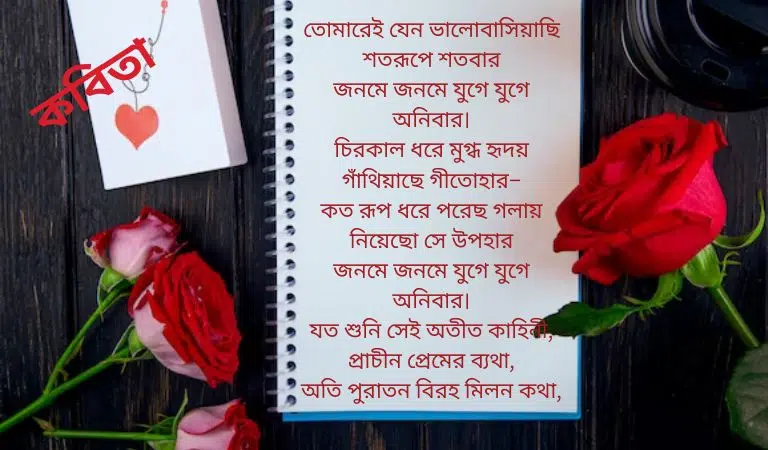 কবিতা
তোমারেই যেন ভালোবাসিয়াছি
শতরূপে শতবার
জনমে জনমে যুগে যুগে
অনিবার।
চিরকাল ধরে মুগ্ধ হৃদয়
গাঁথিয়াছে গীতোহার–
কত রূপ ধরে পরেছ গলায়
নিয়েছো সে উপহার
জনমে জনমে যুগে যুগে
অনিবার।
যত শুনি সেই অতীত কাহিনী,
প্রাচীন প্রেমের ব্যথা,
অতি পুরাতন বিরহ মিলন কথা,